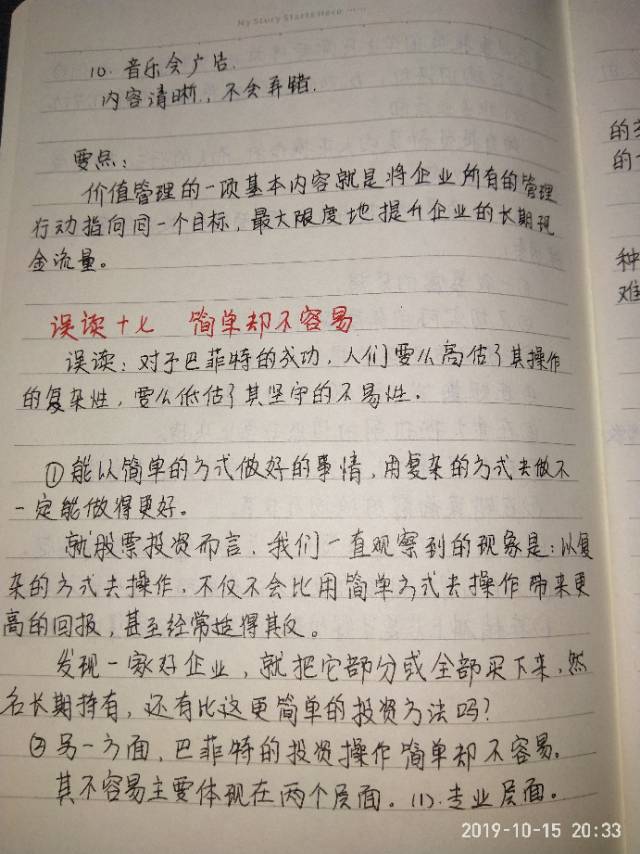 My Story Starts Here ······
10. 音乐会广告.
内容清晰, 不会弄错.
要点：
价值管理的一项基本内容就是将企业所有的管理
行动指向同一个目标, 最大限度地提升企业的长期现
金流量。
误读十七 简单却不容易
误读：对于巴菲特的成功, 人们要么高估了其操作
的复杂性, 要么低估了其坚守的不易性.
①能以简单的方式做好的事情, 用复杂的方式去做不
一定能做得更好。
就股票投资而言, 我们一直观察到的现象是：以复
杂的方式去操作, 不仅不会比用简单方式去操作带来更
高的回报, 甚至经常适得其反。
发现一家好企业, 就把它部分或全部买下来, 然
后长期持有, 还有比这更简单的投资方法吗?
②另一方面, 巴菲特的投资操作简单却不容易.
其不容易主要体现在两个层面。(1). 专业层面。
的
的
种
难
2019-10-15 20:33